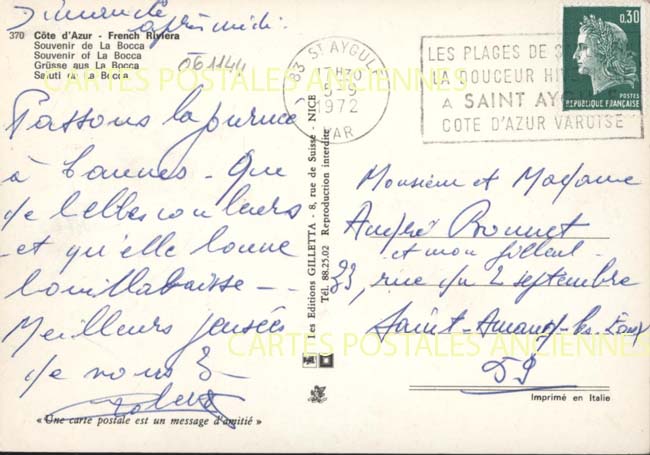 Dimanche
après midi.
370 Côte d'Azur - French Riviera
Souvenir de La Bocca
Souvenir of La Bocca
Grüsse aus La Bocca
Saluti da La Bocca
061144
Passons la journée
à Cannes - Que
de belles couleurs
et qu'elle bonne
bouillabaisse -
Meilleurs pensées
de nous 3 -
« Une carte postale est un message d'amitié »
Les Editions GILLETTA - 8, rue de Suisse - NICE
Tél. 88.25.02 Reproduction interdite
83 ST AYGULF
17H30
5-9
1972
VAR
LES PLAGES DE
LA DOUCEUR
A SAINT
COTE D'AZUR VAROISE
0,30
POSTES
REPUBLIQUE FRANÇAISE
Monsieur et Madame
André Bonnet
et mon filleul
33, rue du 2 septembre
Saint-Amand-les-Eaux
59
Imprimé en Italie
CARTES POSTALES ANCIENNES
CARTES POSTALES ANCIENNE